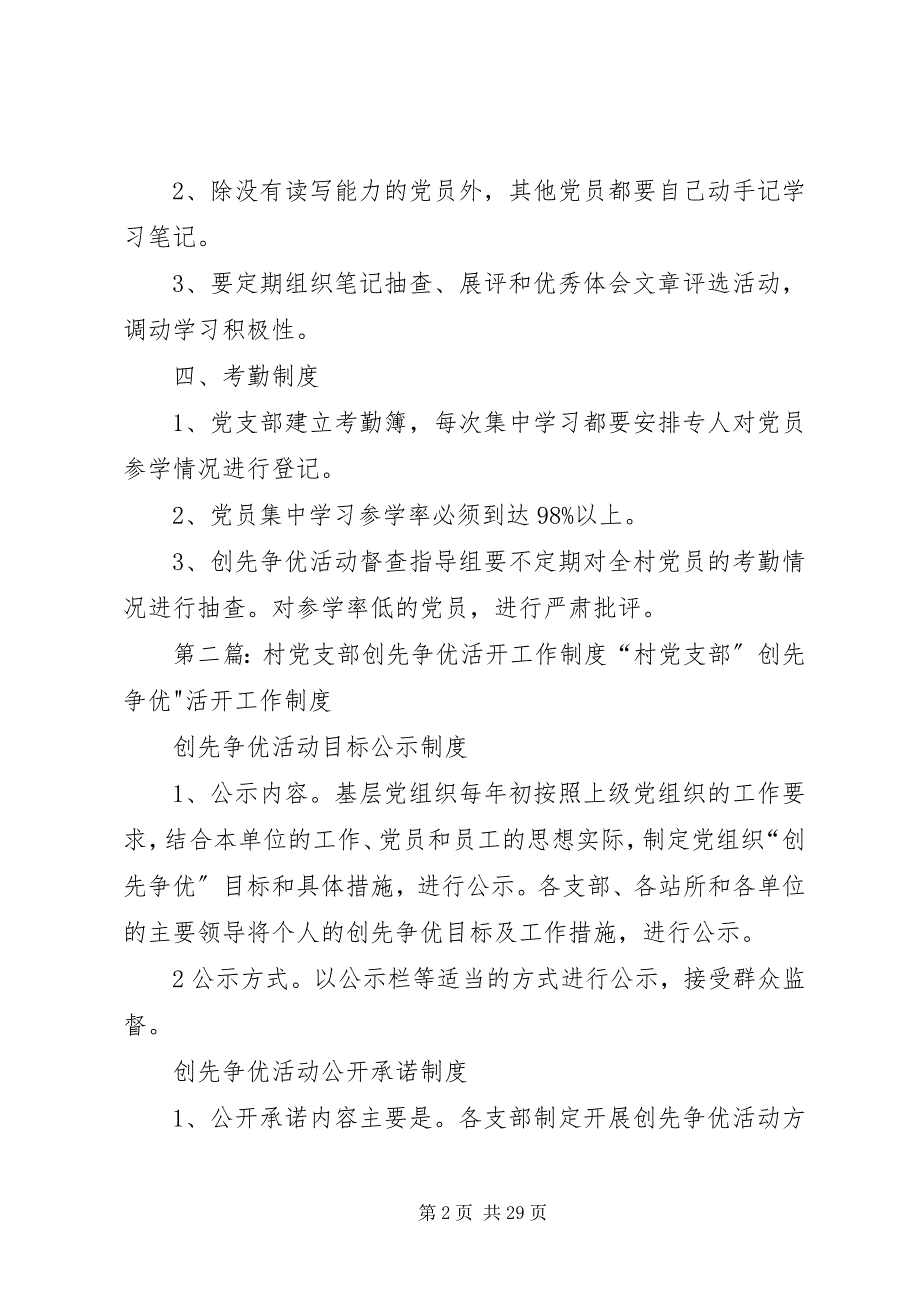 2、除没有读写能力的党员外，其他党员都要自己动手记学
习笔记。
3、要定期组织笔记抽查、展评和优秀体会文章评选活动，
调动学习积极性。
四、考勤制度
1、党支部建立考勤簿，每次集中学习都要安排专人对党员
参学情况进行登记。
2、党员集中学习参学率必须到达 98%以上。
3、创先争优活动督查指导组要不定期对全村党员的考勤情
况进行抽查。对参学率低的党员，进行严肃批评。
第二篇：村党支部创先争优活开工作制度“村党支部〞创先
争优"活开工作制度
创先争优活动目标公示制度
1、公示内容。基层党组织每年初按照上级党组织的工作要
求，结合本单位的工作、党员和员工的思想实际，制定党组织“创
先争优〞目标和具体措施，进行公示。各支部、各站所和各单位
的主要领导将个人的创先争优目标及工作措施，进行公示。
2 公示方式。以公示栏等适当的方式进行公示，接受群众监
督。
创先争优活动公开承诺制度
1、公开承诺内容主要是。各支部制定开展创先争优活动方
第 2 页 共 29 页